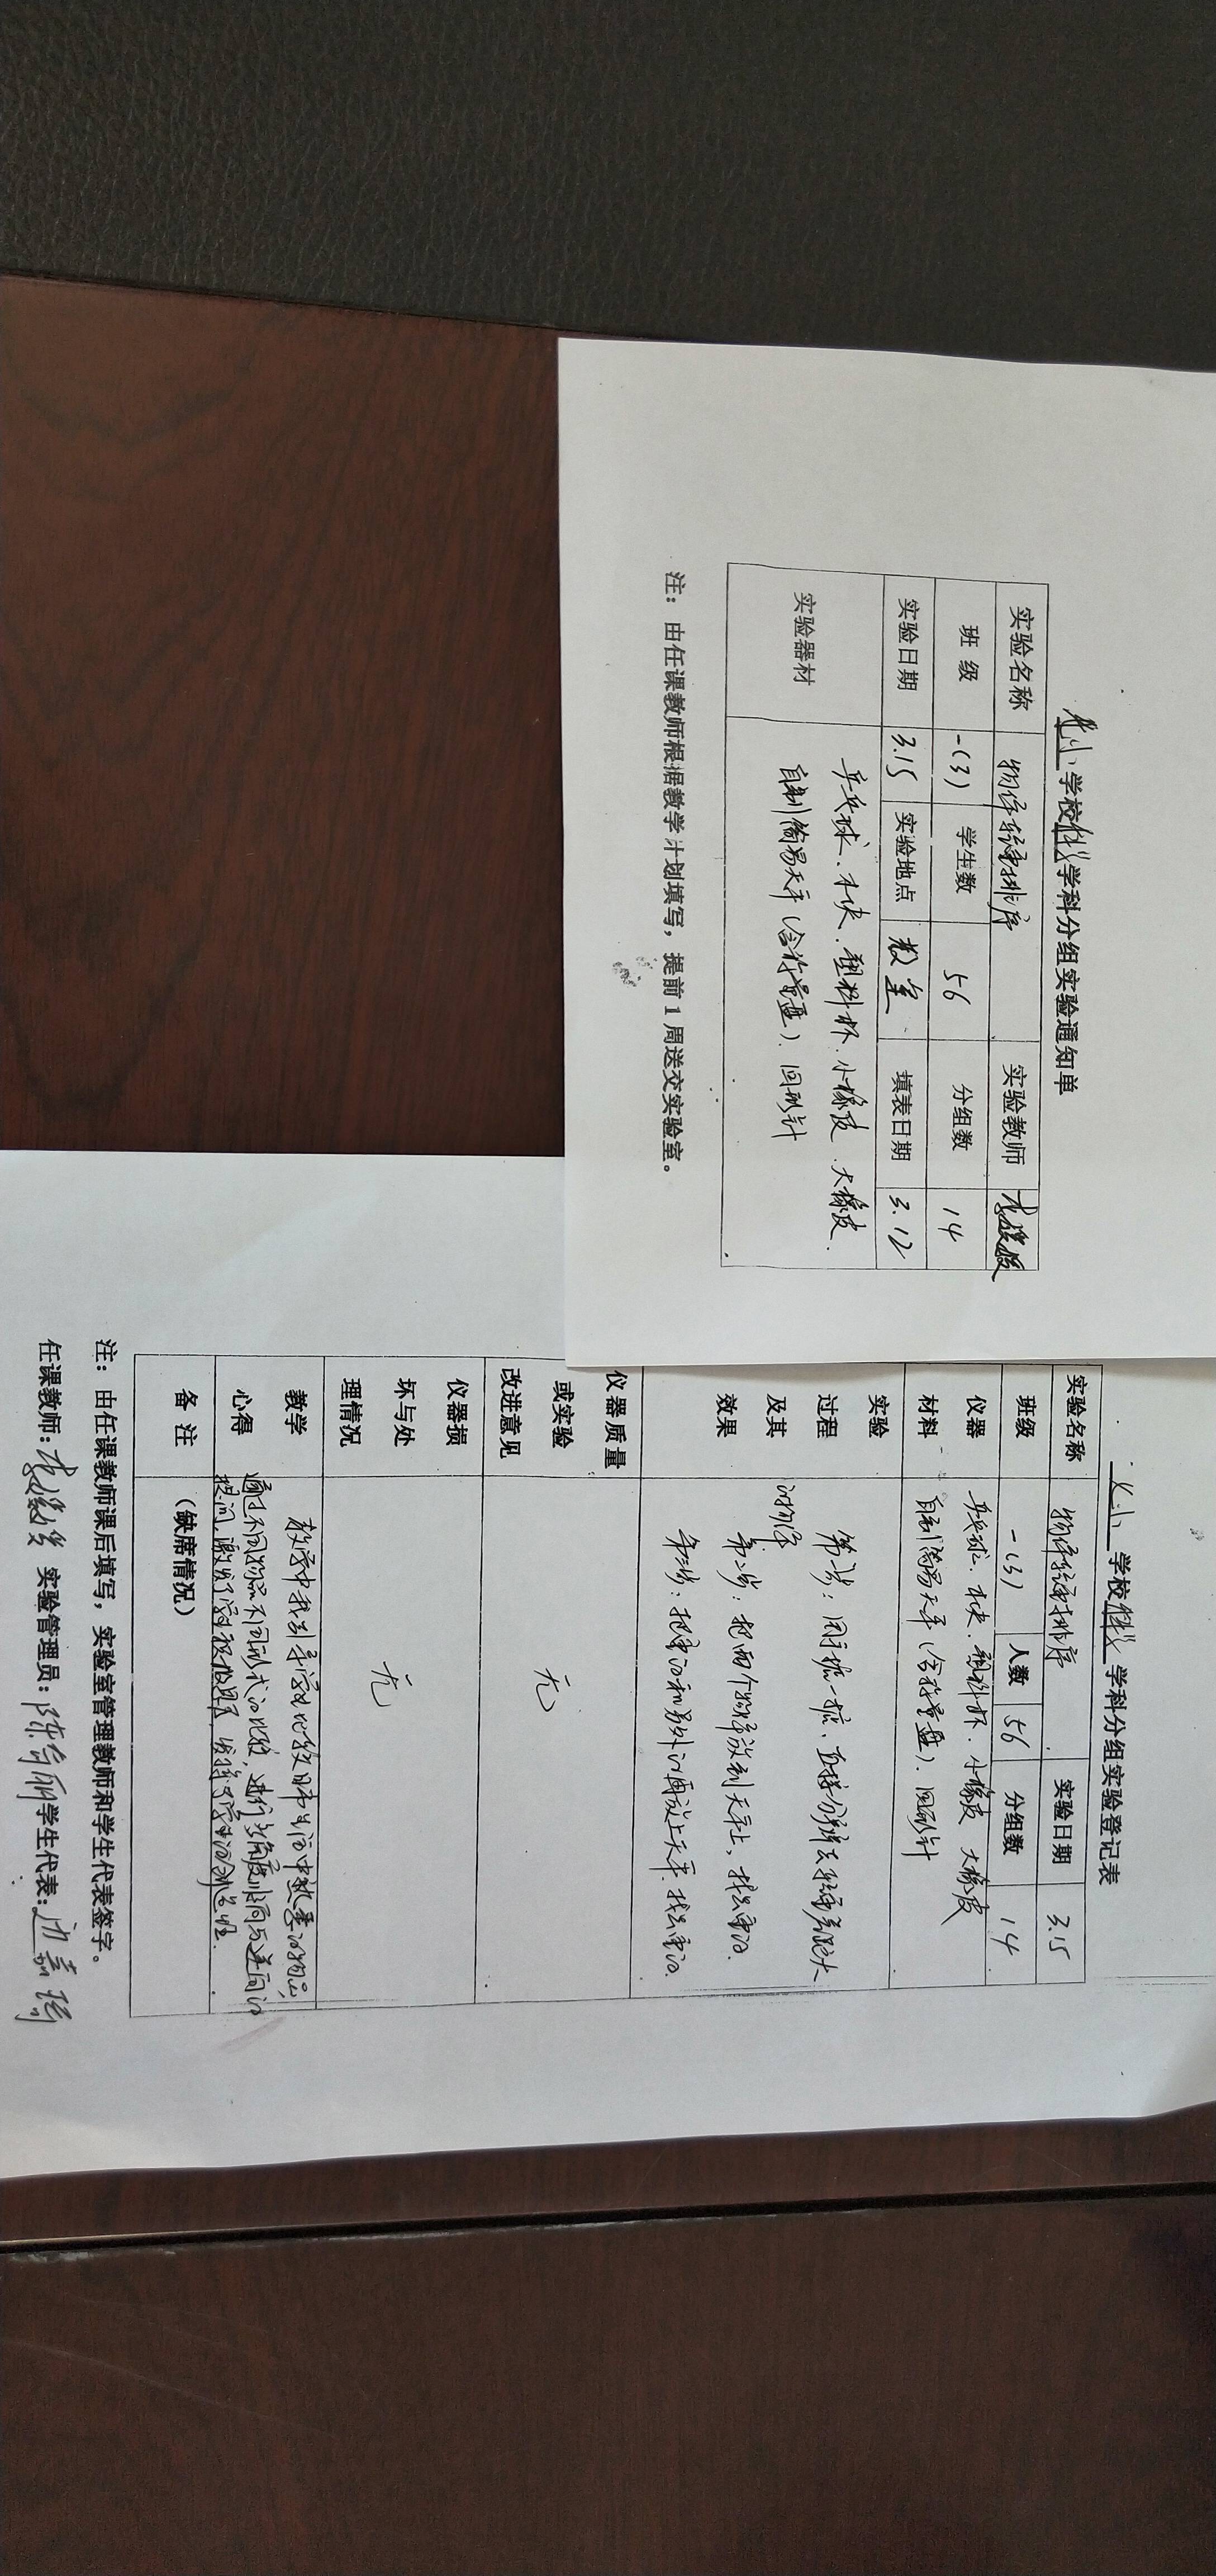 学校科学学科分组实验通知单
实验名称 物体轻重排序 实验教师
班 级 一(3) 学生数 56 分组数 14
实验日期 3.15 实验地点 教室 填表日期 3.12
实验器材
乒乓球、木块、塑料杯、小橡皮、大橡皮、
自制简易天平(含称量盘)、回形针
注：由任课教师根据教学计划填写，提前1周送交实验室。
学校科学学科分组实验登记表
实验名称 物体轻重排序 实验日期 3.15
班级 一(3) 人数 56 分组数 14
仪器 乒乓球、木块、塑料杯、小橡皮 大橡皮
材料 自制简易天平(含称量盘)、回形针
实验
过程
及其
效果
第一步：用手掂一掂，直接分辨出轻重差距大
的物体
第二步：把两个物体放到天平上，找出重的.
第三步：把重的和另外的再放上天平，找出重的.
仪器质量
或实验
改进意见
无
仪器损
坏与处
理情况
无
教学
心得
教学中我引导学生比较日常生活中熟悉的物品，
通过不同物品不同形式的比较，进行多角度倾向与逆向的
提问，激发了学生积极思
备 注
（缺席情况）
注：由任课教师课后填写，实验室管理教师和学生代表签字。
任课教师： 实验管理员： 学生代表：